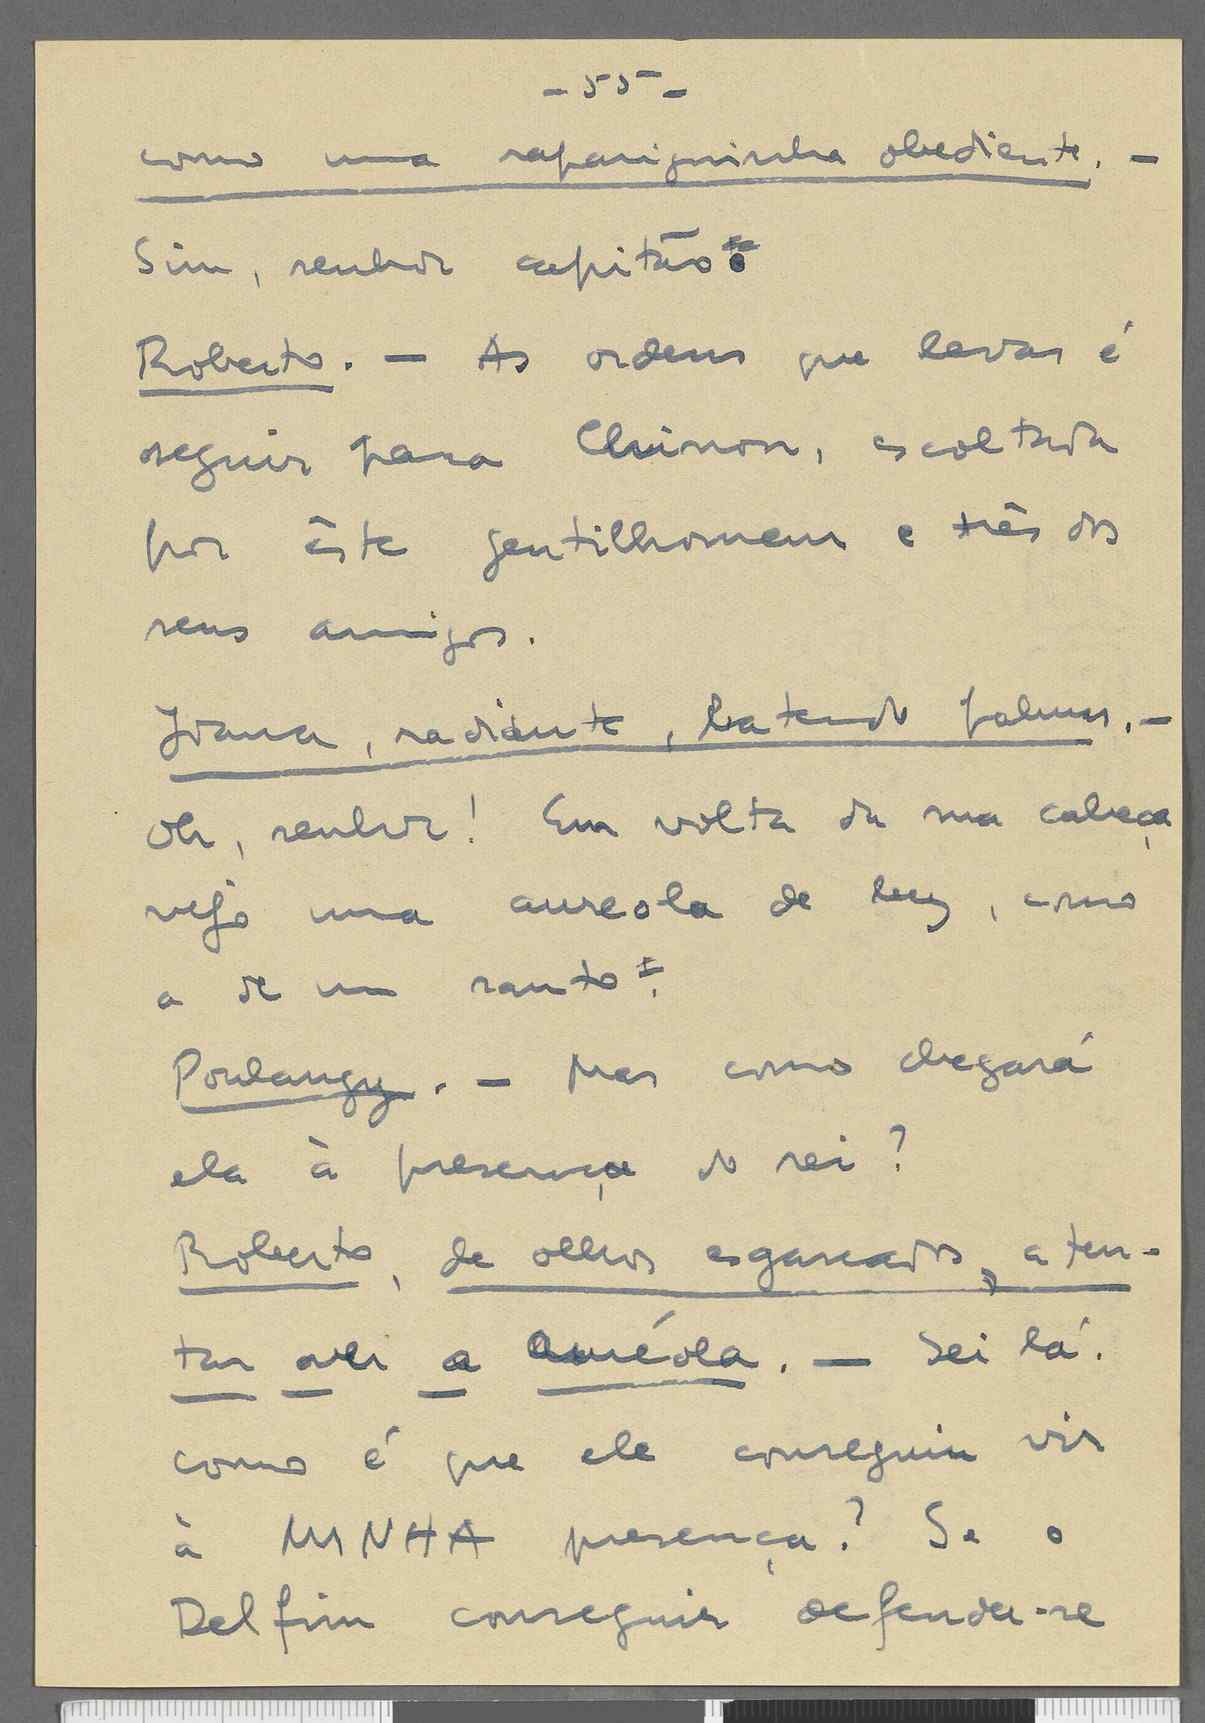 - 55 -
como uma rapariguinha obediente. -
Sim, senhor capitão.
Roberto. - As ordens que levas é
seguir para Chinon, escoltada
por êste gentilhomem e três dos
seus amigos.
Joana, radiante, batendo palmas. -
Oh, senhor! Em volta da sua cabeça
vejo uma aureola de luz, como
a de um santo.
Poulangy. - Mas como chegará
ela à presença do rei?
Roberto, de olhos esgareados, a ten-
tar ver a auréola. - Sei lá.
como é que ele conseguiu vir
à MINHA presença? Se o
Delfim conseguir defender-se